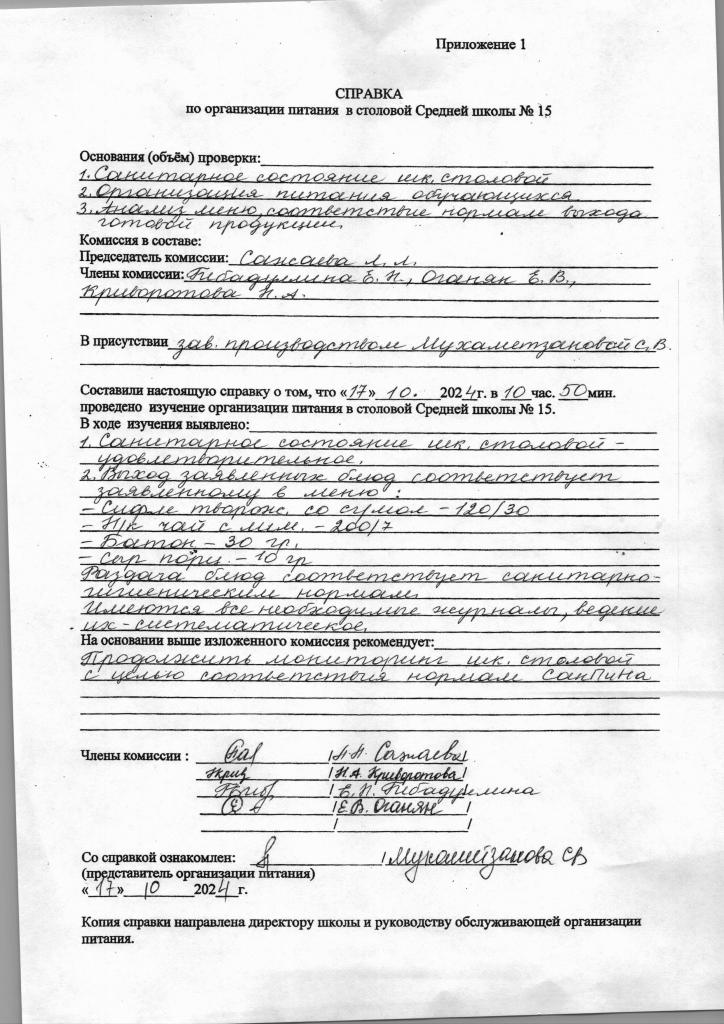 Приложение 1
СПРАВКА
по организации питания в столовой Средней школы № 15
Основания (объём) проверки:
1. Санитарное состояние шк. столовой
2. Организация питания обучающихся
3. Анализ меню, соответствие нормам выхода
готовой продукции.
Комиссия в составе:
Председатель комиссии: Сажаева Л. Л.
Члены комиссии: Гибадулмина Е. П., Оганян Е. В.,
Криворотова Н. А.
В присутствии зав. производством Мухаметзановой С.В.
Составили настоящую справку о том, что «17» 10. 2024г. в 10 час. 50 мин.
проведено изучение организации питания в столовой Средней школы № 15.
В ходе изучения выявлено:
1. Санитарное состояние шк. столовой –
удовлетворительное.
2. Выход заявленных блюд соответствует
заявленному в меню :
– Суфле творож. со сгумол – 120/30
– Н/к чай с лим. – 200/7
– Батон – 30 гр.
– Сыр порц. – 10 гр
Раздача блюд соответствует санитарно-
гигиеническим нормам.
Имеются все необходимые журналы, ведение
их – систематическое.
На основании выше изложенного комиссия рекомендует:
Продолжить мониторинг шк. столовой
с целью соответствия нормам СанПиНа
Члены комиссии : / Сажаева/
/Н.А. Криворотова/
/ Е. П. Гибадулмина
/Е.В. Оганян /
/ /
Со справкой ознакомлен: / Мухаметзанова СВ
(представитель организации питания)
«17» 10 2024 г.
Копия справки направлена директору школы и руководству обслуживающей организации
питания.